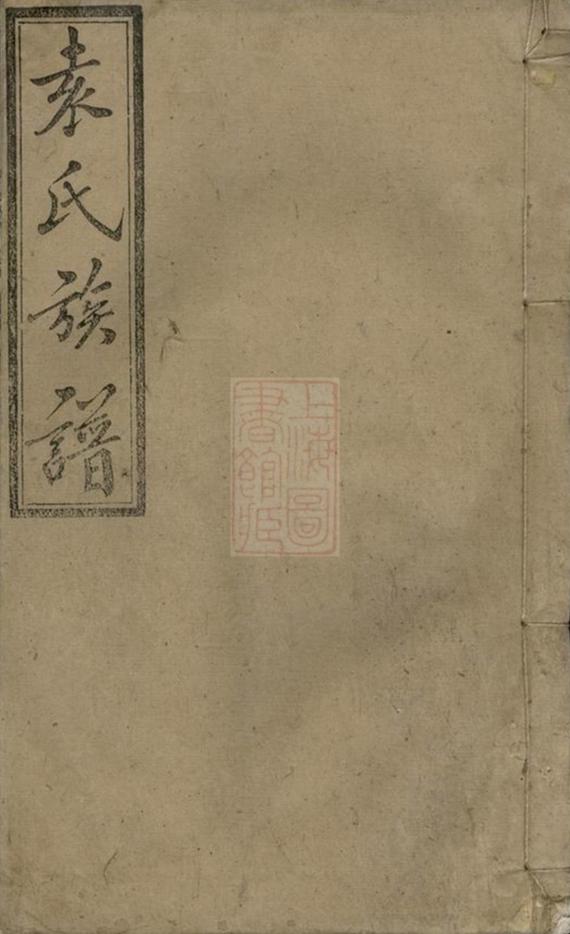 袁氏族譜
上海圖
書館藏